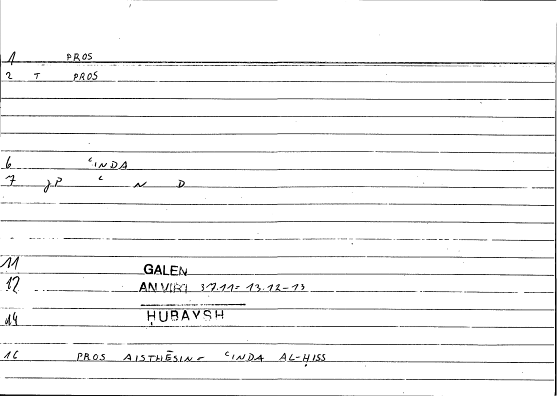 1 PROS
2 T PROS
6 ʿINDA
7 gP ʿ N D
11 GALEN
12 AN VIRT 37.11= 13.12-13
14 ḤUBAYSH
16 PROS AISTHĒSIN = ʿINDA AL-ḤISS